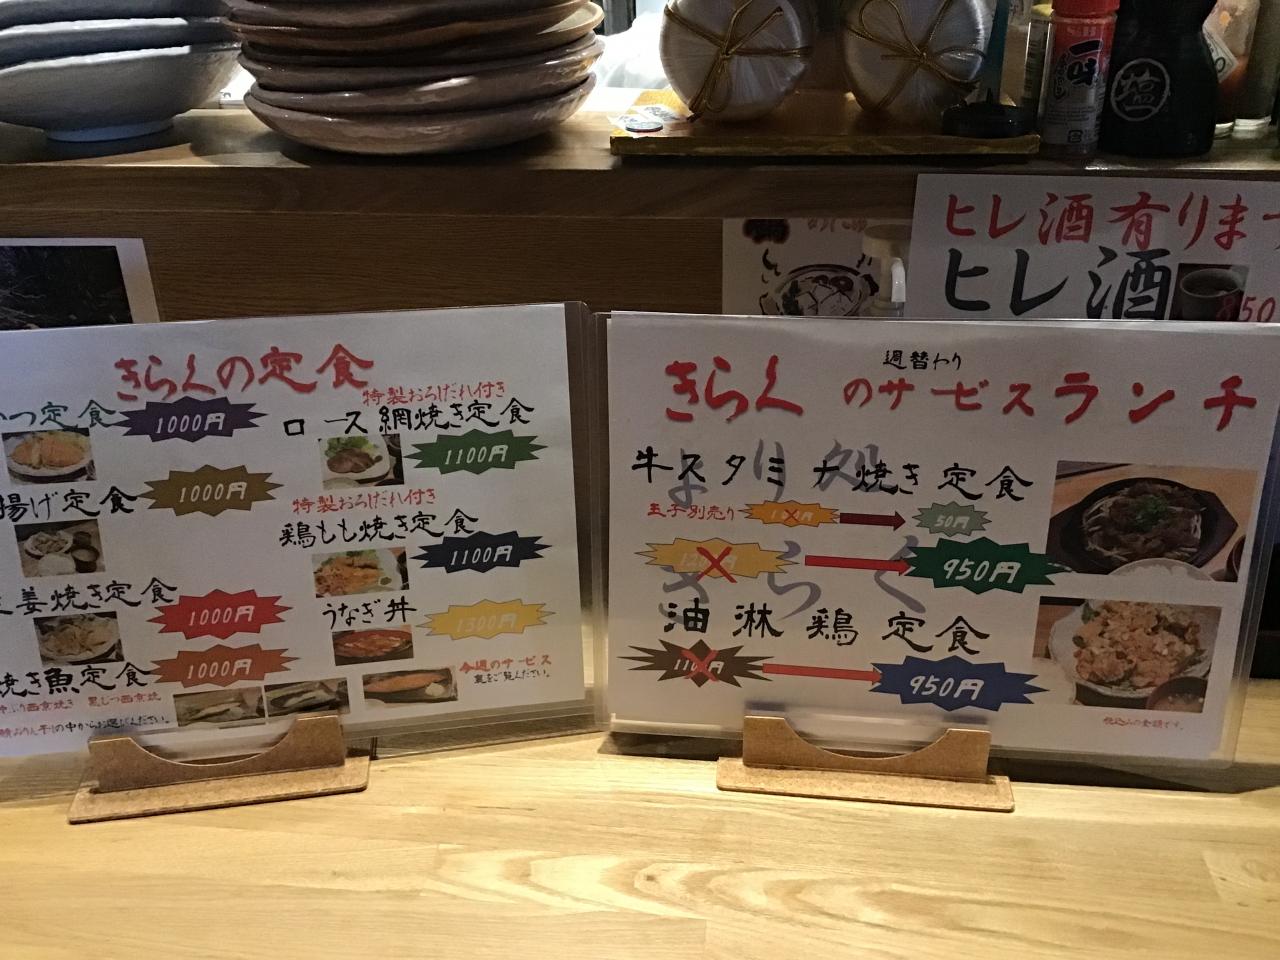 一味
塩
ヒレ酒有りま
ヒレ酒
850
きらくの定食
つ定食 1000円
揚げ定食 1000円
姜焼き定食 1000円
焼き魚定食 1000円
特製おろしだれ付き
ロース網焼き定食 1100円
特製おろしだれ付き
鶏もも焼き定食 1100円
うなぎ丼 1300円
今週のサービス
裏をご覧ください。
の中からお選びください。
週替わり
きらくのサービスランチ
より処
きらく
牛スタミナ焼き定食
玉子別売り 50円
950円
油淋鶏定食
950円
税込みの金額です。